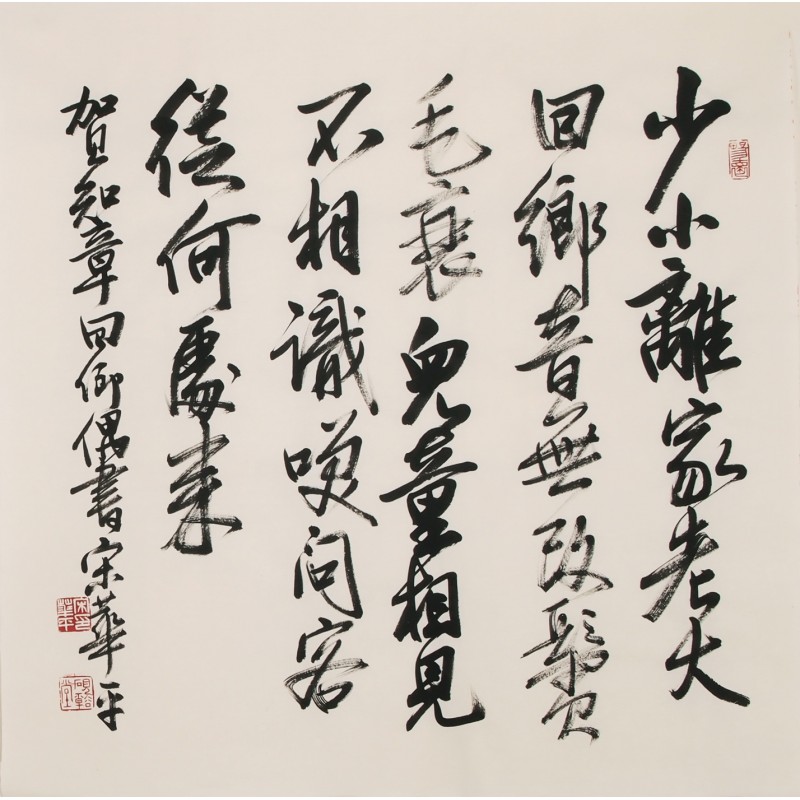 少小離家老大
回鄉音無改鬢
毛衰兒童相見
不相識咲问客
從何處来
贺知章回乡偶書宋華平